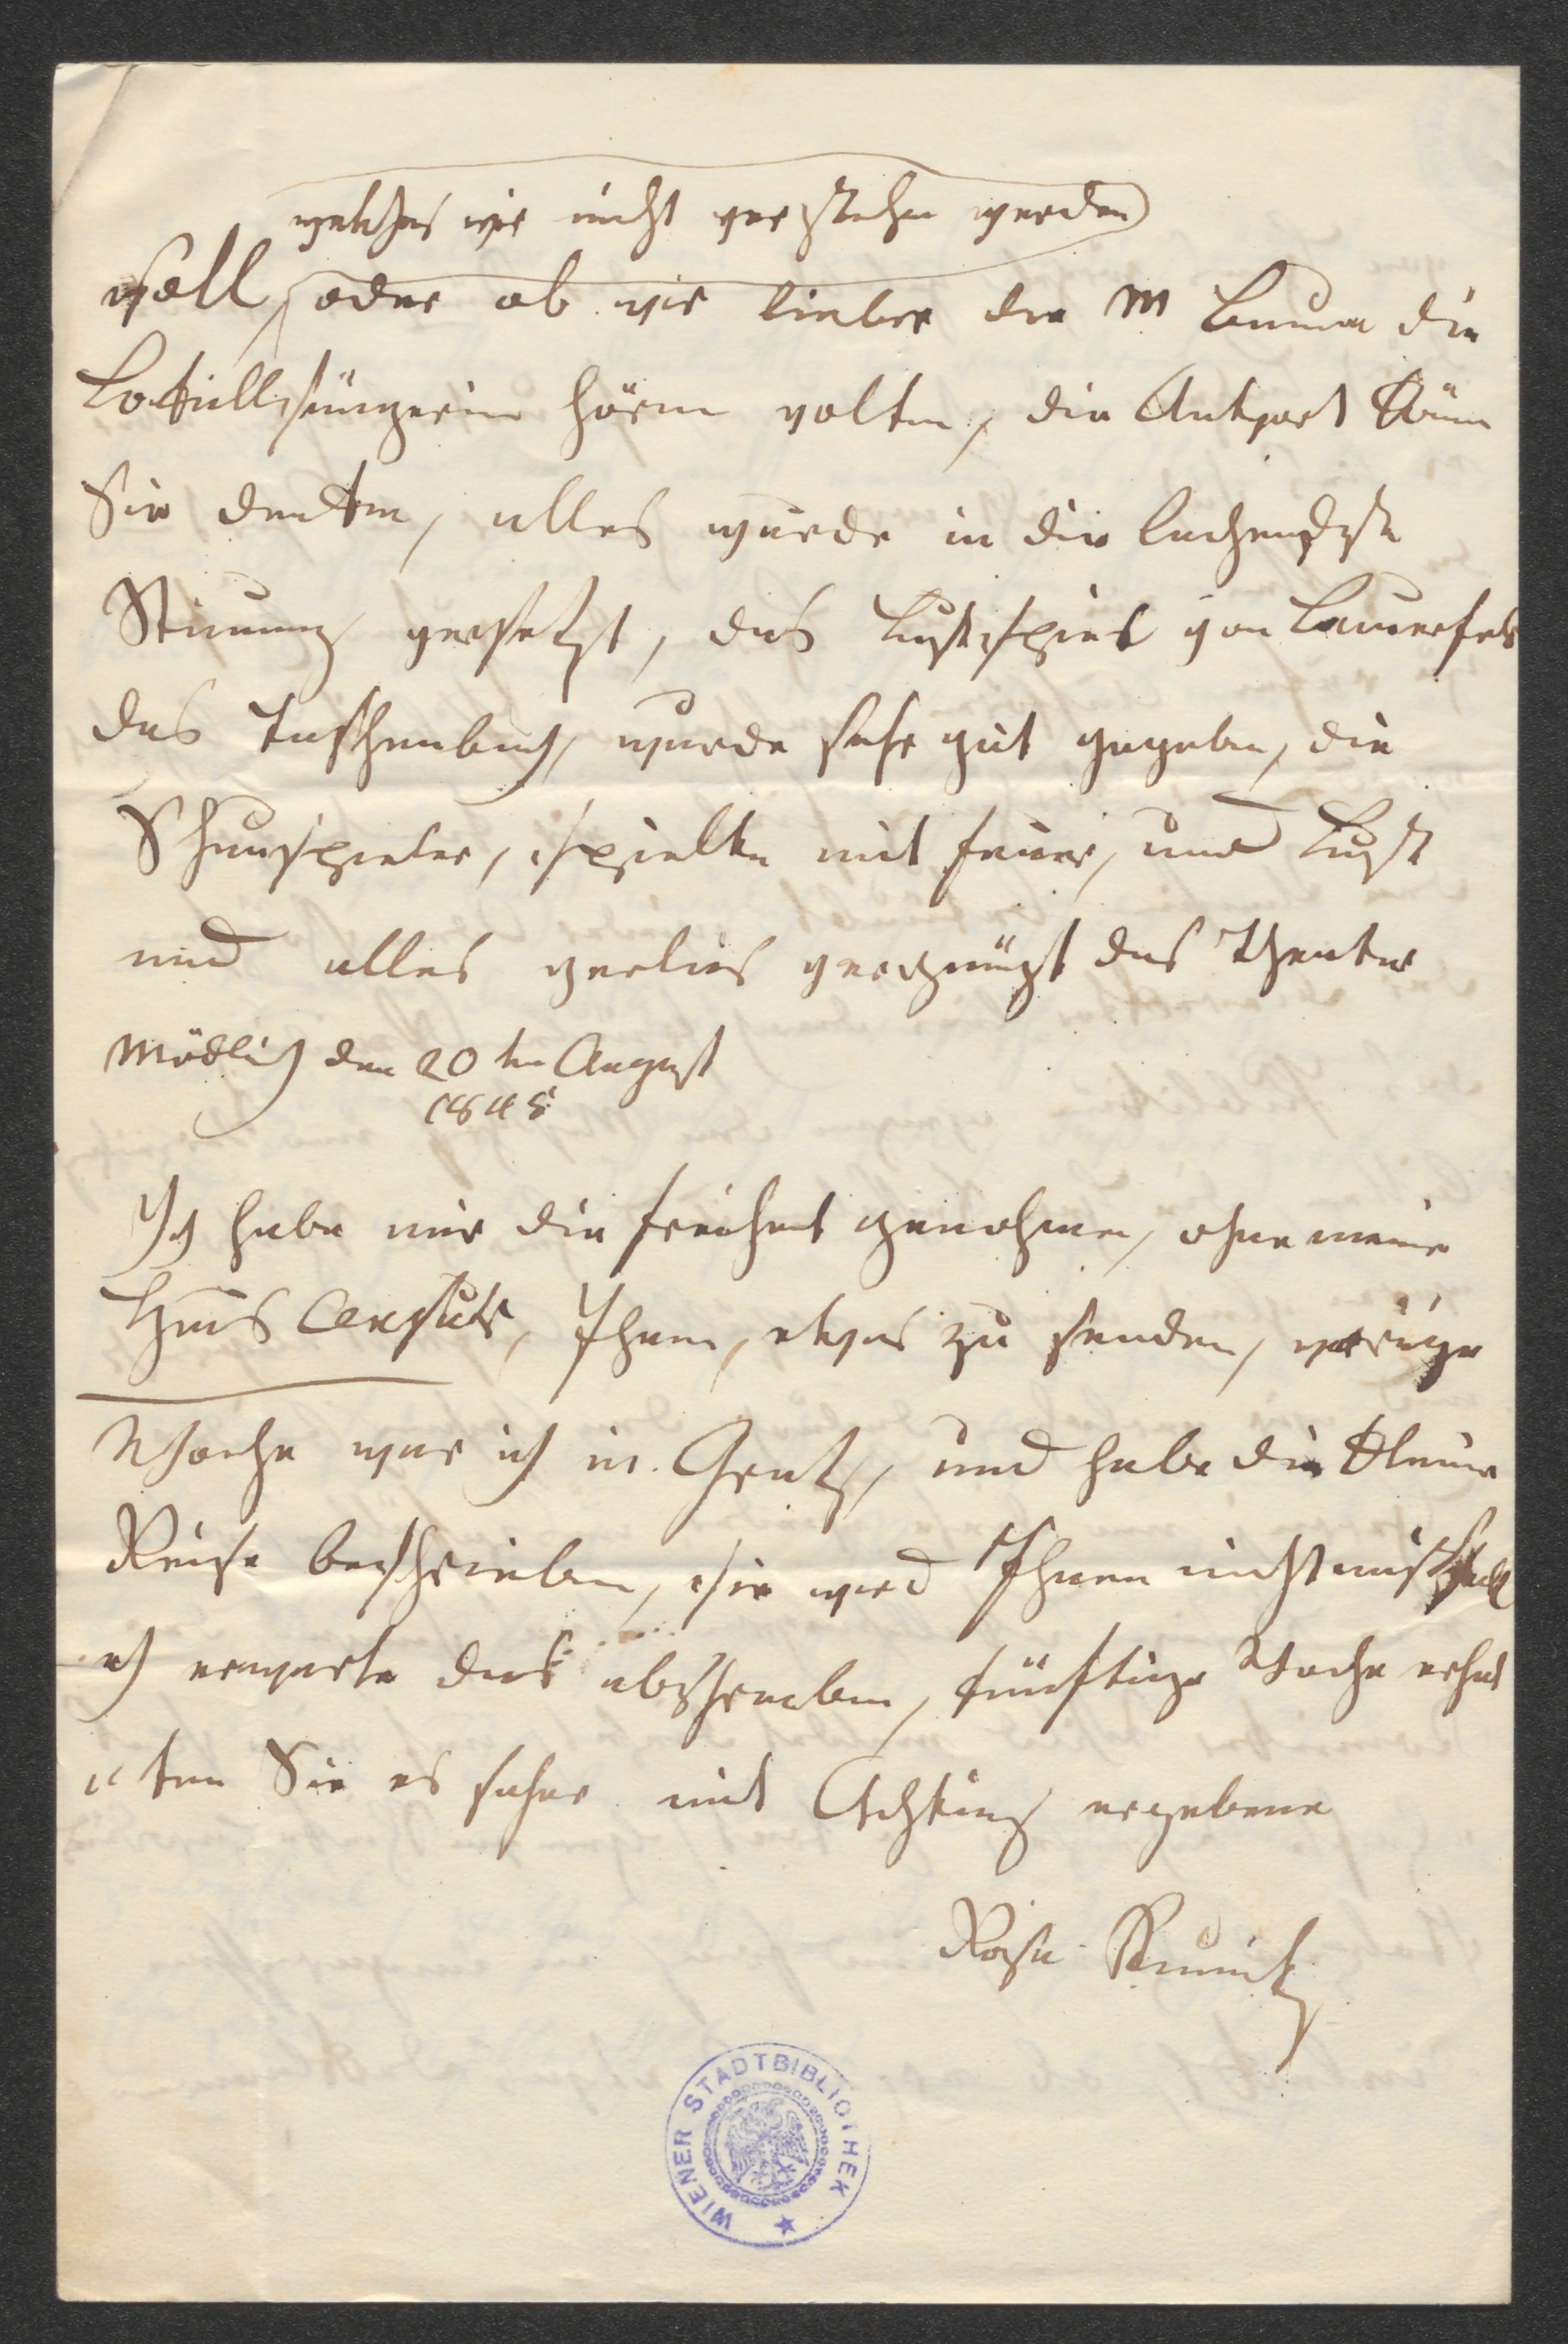 welches wir nicht verstehn werden
soll, oder ob wir lieber die M Baum die
Lokallsängerin hören wolten, die Antwort kön
Sie denken, alles wurde in die lachendste
Stimung versetzt, das Lustspiel von Bauernfeld
das Taschenbuch, wurde sehr gut gegeben, die
Schauspieler, spielten mit Feuer, und Lust
und alles verlies vergnügt das Theater
Mödling den 20ten August
1845
Ich habe mir die Freiheit genohmen, ohne meine
Ihnen, etwas zu senden, vorige
Woche war ich in Gratz, und habe die kleine
Reise beschrieben, sie wird Ihnen nicht misfall
ich erwarte das abschreiben, künftige Woche erhal
"ten Sie es sicher mit Achtung ergebene
Rosa
WIENER STADTBIBLIOTHEK